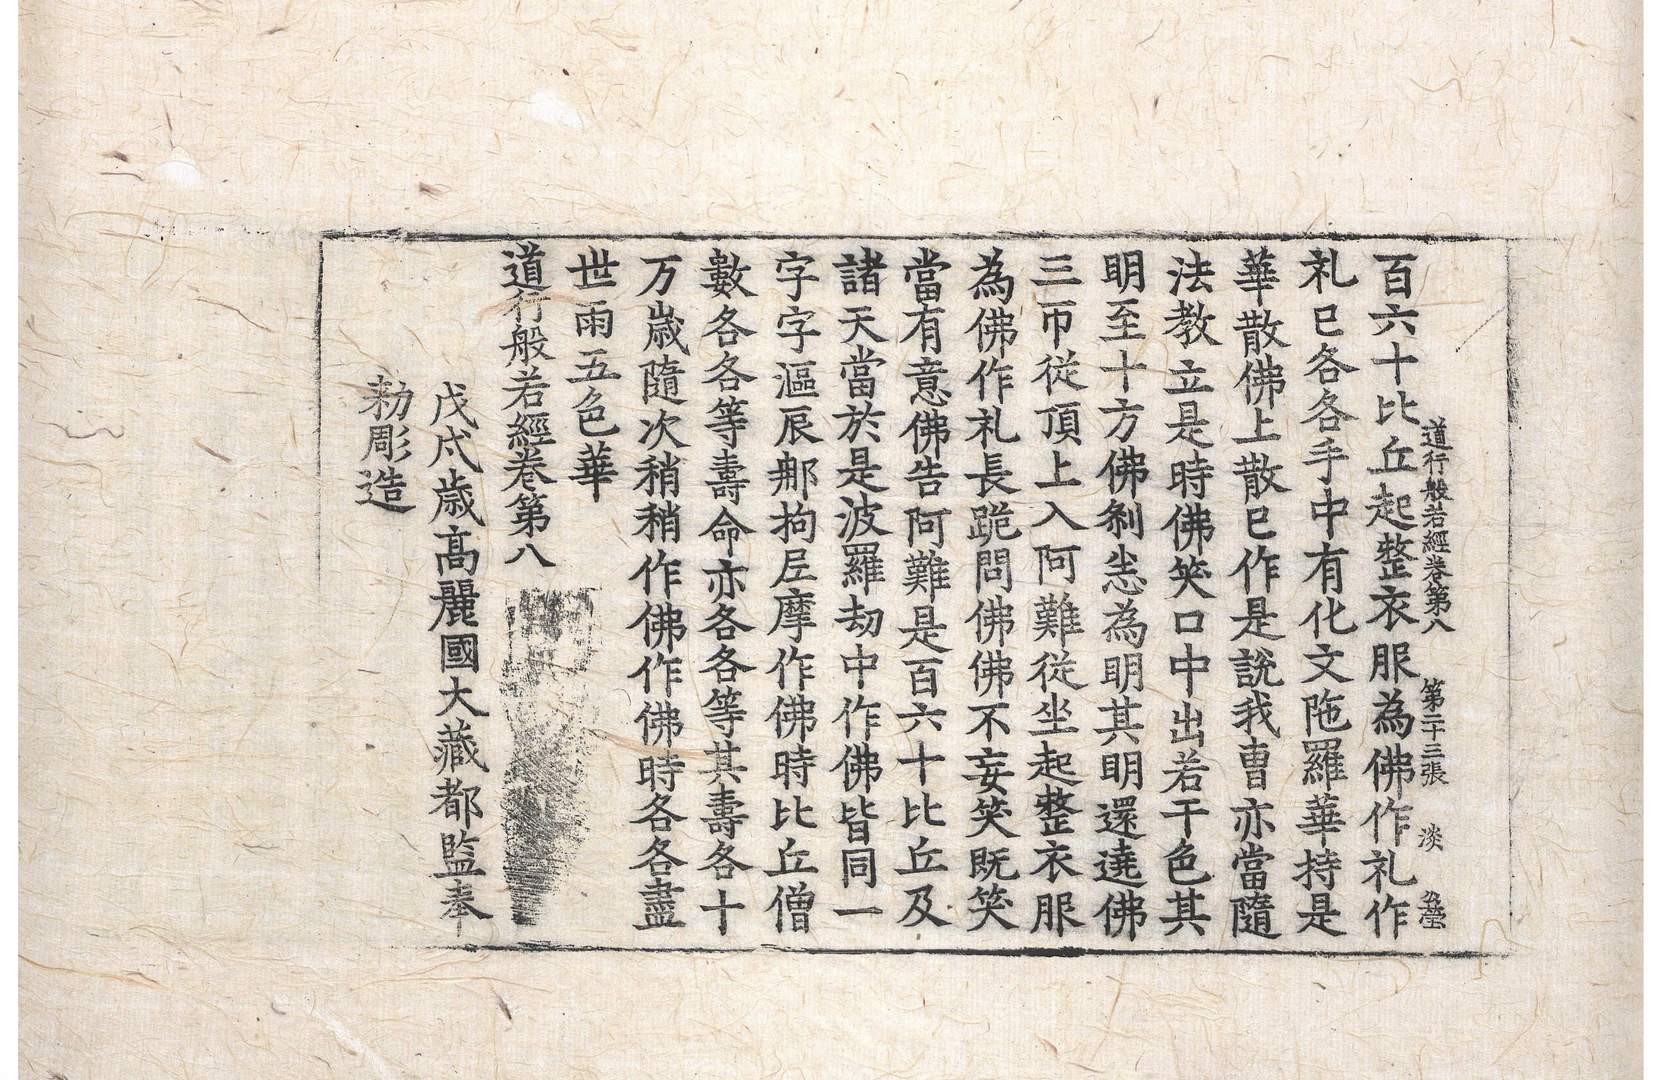 道行般若經卷第八 第二十三張 淡
百六十比丘起整衣服為佛作礼作
礼已各各手中有化文陁羅華持是
華散佛上散已作是說我曹亦當隨
法教立是時佛笑口中出若干色其
明至十方佛刹悉為明其明還遶佛
三帀從頂上入阿難從坐起整衣服
為佛作礼長跪問佛佛不妄笑既笑
當有意佛告阿難是百六十比丘及
諸天當於是波羅劫中作佛皆同一
字字漚辰那拘㞐摩作佛時比丘僧
數各各等壽命亦各各等其壽各十
万歲隨次稍稍作佛作佛時各各盡
世雨五色華
道行般若經卷第八
戊戌歲高麗國大藏都監奉
勑彫造